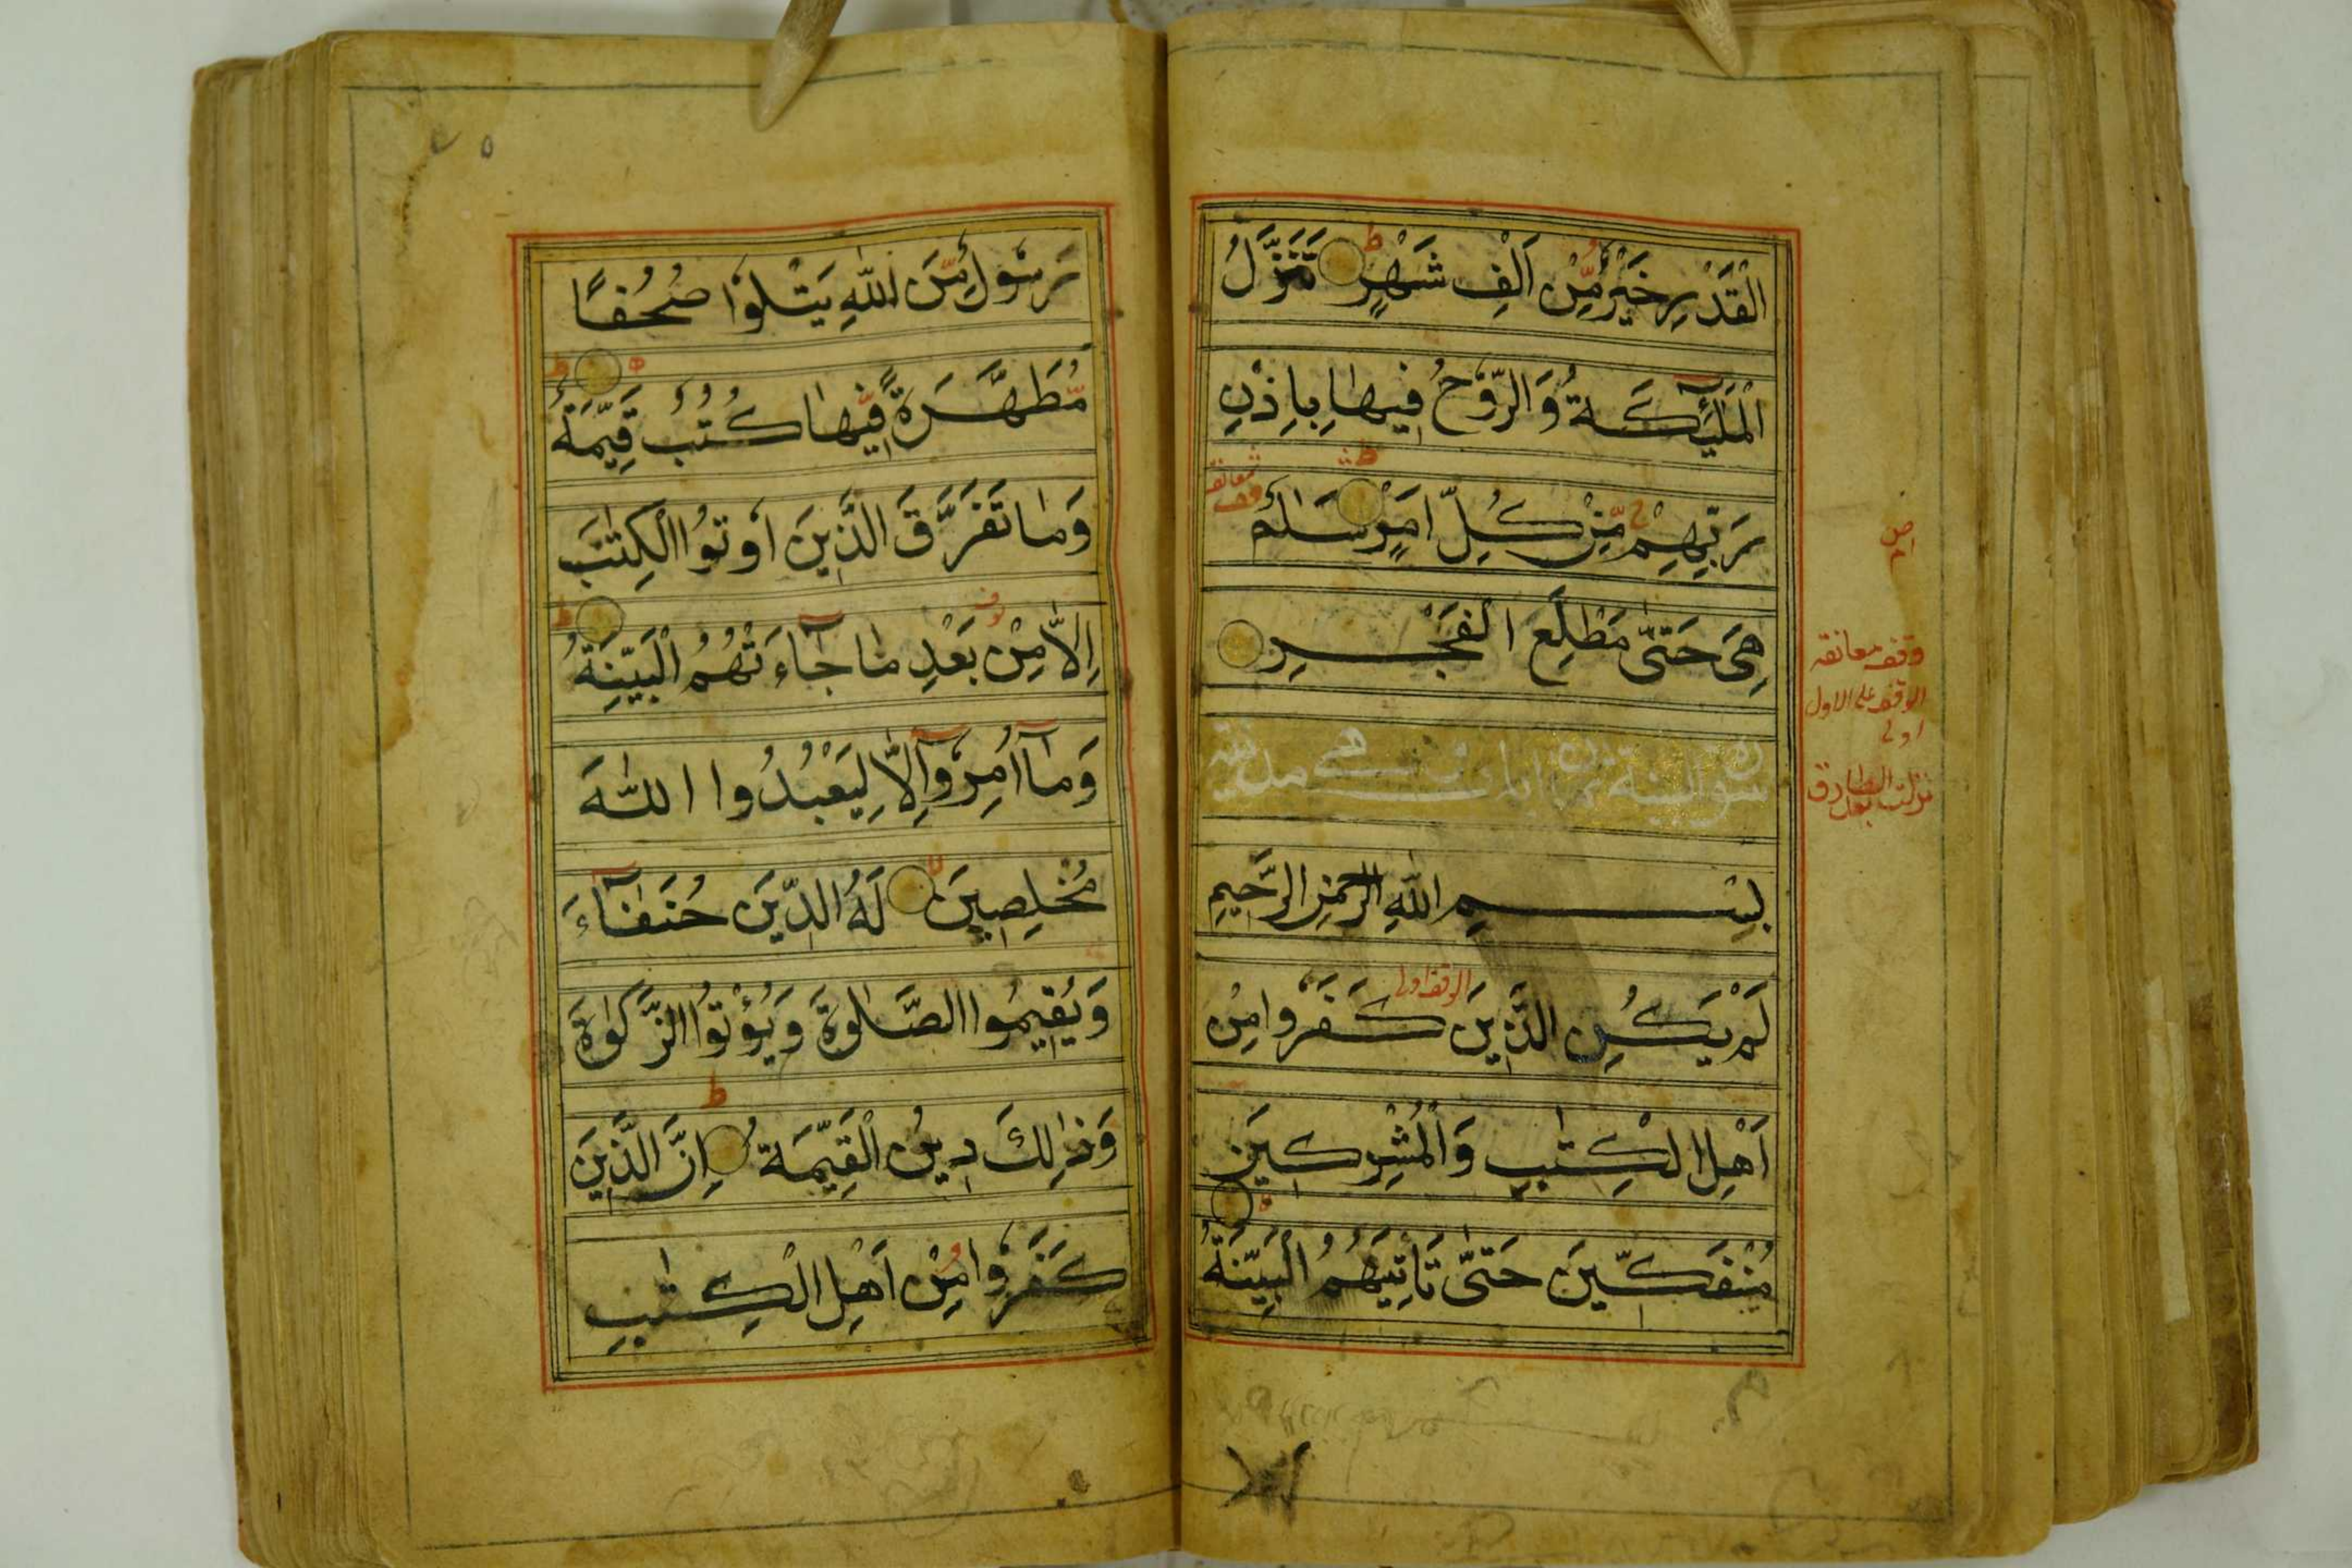 الْقَدْرِ خَيْرٌ مِّنْ اَلْفِ شَهْرٍ ط تَنَزَّلُ
الْمَلٰٓئِكَةُ وَالرُّوْحُ فِيهَا بِاِذْنِ
رَبِّهِمْ مِّنْ كُلِّ اَمْرٍ ط سَلٰمٌ
معانقه
وقف
هِىَ حَتّٰى مَطْلَعِ الْفَجْرِ
سورة البينة
بِسْمِ اللّٰهِ الرَّحْمٰنِ الرَّحِيمِ
لَمْ يَكُنِ الَّذِينَ كَفَرُوْا مِنْ
الوقف اولى
اَهْلِ الْكِتٰبِ وَالْمُشْرِكِينَ
مُنْفَكِّينَ حَتّٰى تَأْتِيَهُمُ الْبَيِّنَةُ
وقف معانقه
الوقف على الاول
اولى
نزلت بعد الطلاق
رَسُوْلٌ مِّنَ اللّٰهِ يَتْلُوْا صُحُفًا
مُّطَهَّرَةً فِّيهَا كُتُبٌ قَيِّمَةٌ ط
وَمَا تَفَرَّقَ الَّذِينَ اُوْتُوا الْكِتٰبَ
اِلَّا مِنْ بَعْدِ مَا جَآءَتْهُمُ الْبَيِّنَةُ ط
وَمَآ اُمِرُوْٓا اِلَّا لِيَعْبُدُوا اللّٰهَ
مُخْلِصِينَ لَهُ الدِّينَ حُنَفَآءَ
وَيُقِيمُوا الصَّلٰوةَ وَيُؤْتُوا الزَّكٰوةَ
وَذٰلِكَ دِينُ الْقَيِّمَةِ ط اِنَّ الَّذِينَ
كَفَرُوْا مِنْ اَهْلِ الْكِتٰبِ